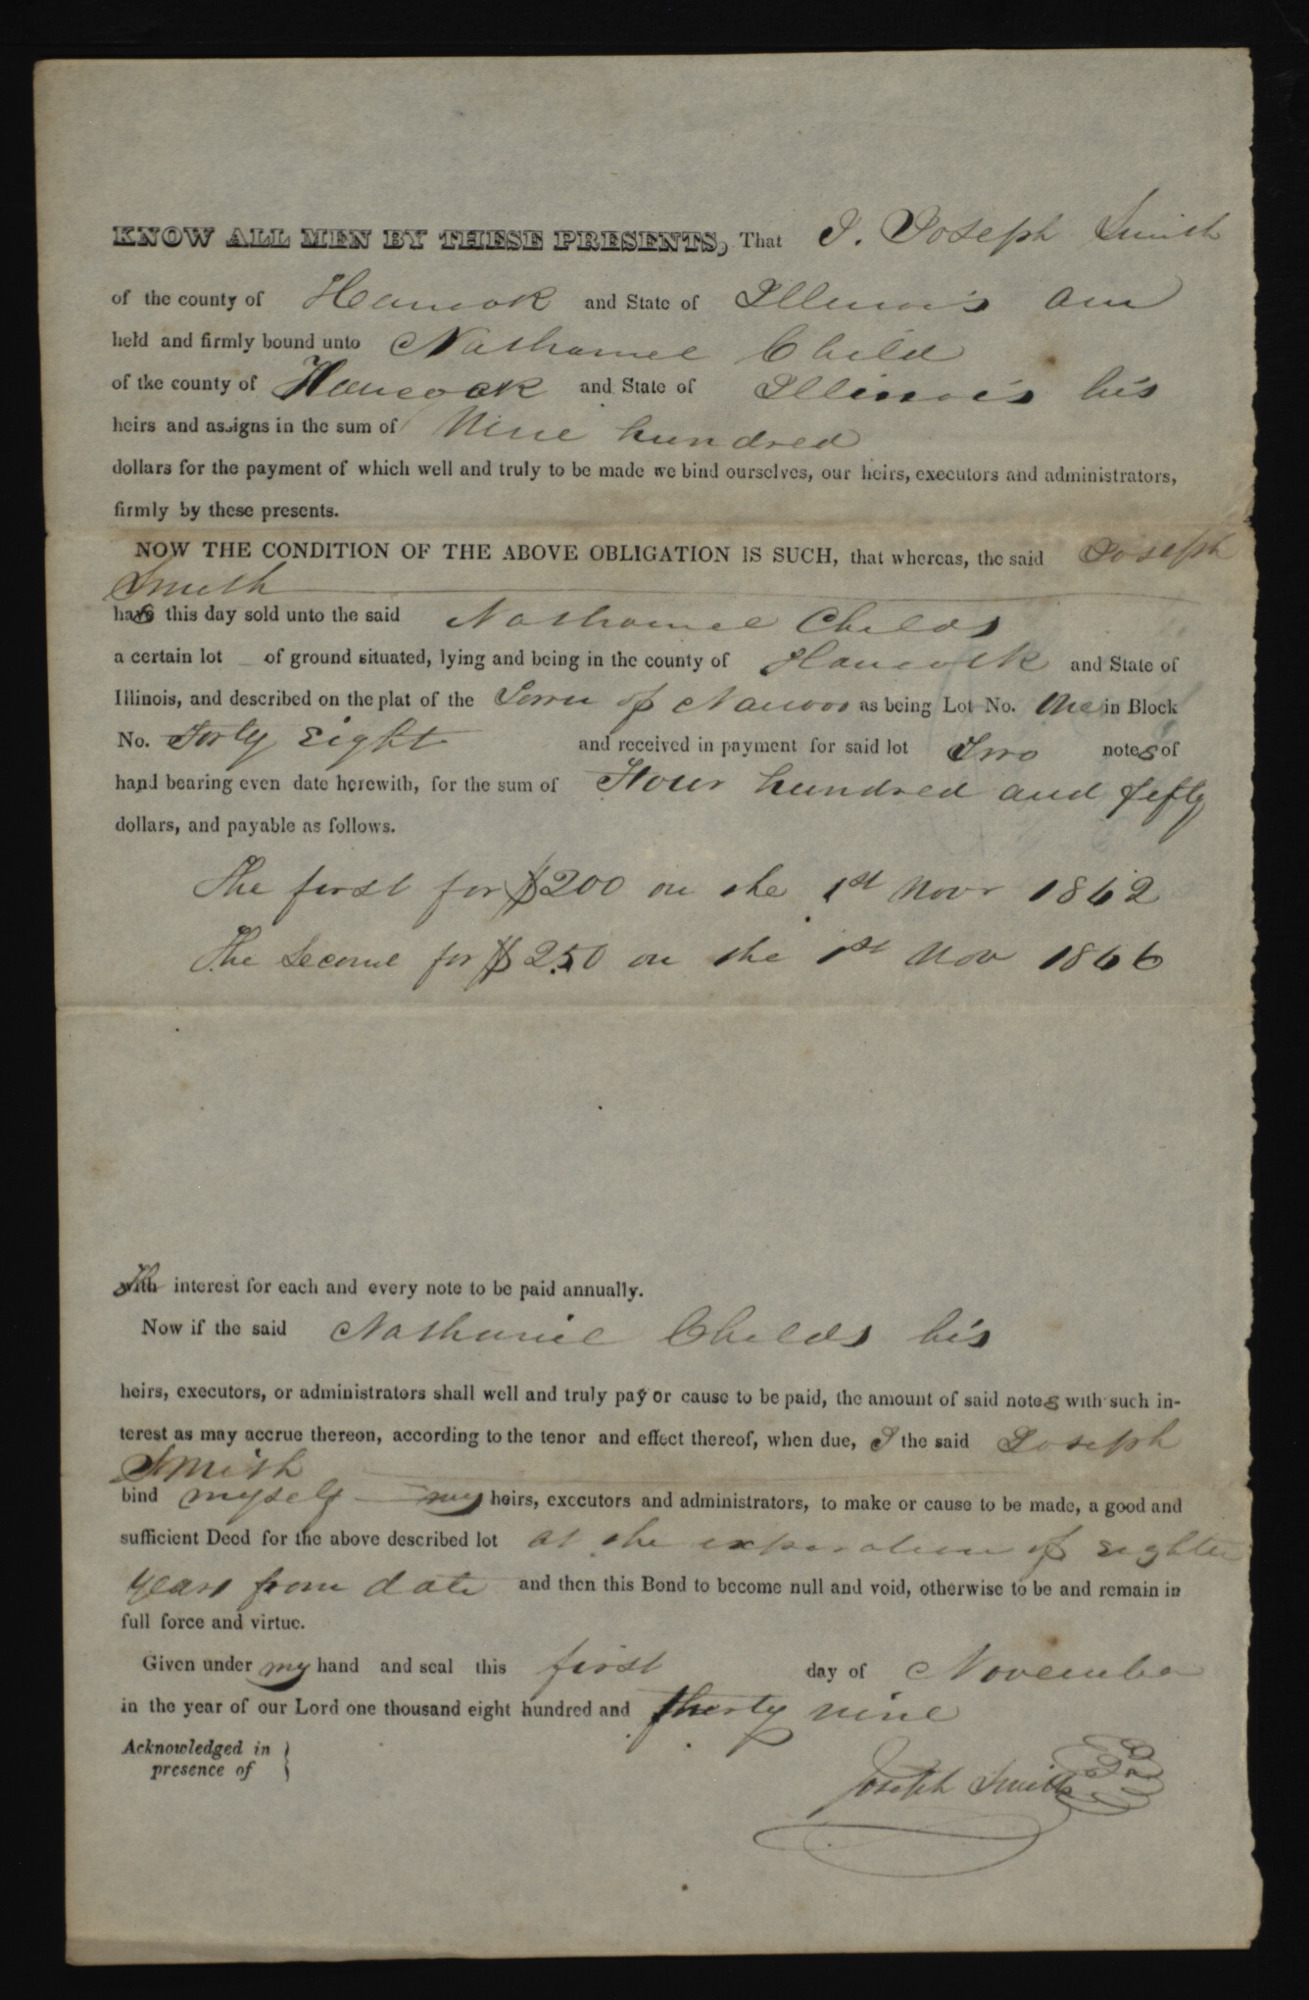 KNOW ALL MEN BY THESE PRESENTS, That I. Joseph Smith
of the county of Hancok and State of Illinois am
held and firmly bound unto Nathaniel Child
of the county of Hancock and State of Illinois his
heirs and assigns in the sum of Nine hundred
dollars for the payment of which well and truly to be made we bind ourselves, our heirs, executors and administrators,
firmly by these presents.
NOW THE CONDITION OF THE ABOVE OBLIGATION IS SUCH, that whereas, the said Joseph
Smith
has this day sold unto the said Nathaniel Childs
a certain lot of ground situated, lying and being in the county of Hancock and State of
Illinois, and described on the plat of the Town of Nauvoo as being Lot No. One in Block
No. Forty Eight and received in payment for said lot Two notes of
hand bearing even date herewith, for the sum of Four hundred and fifty
dollars, and payable as follows.
The first for $200 on the 1st Novr 1842
The Second for $250 on the 1st Nov 1846
interest for each and every note to be paid annually.
Now if the said Nathaniel Childs his
heirs, executors, or administrators shall well and truly pay or cause to be paid, the amount of said notes with such in-
terest as may accrue thereon, according to the tenor and effect thereof, when due, I the said Joseph
Smith
bind myself my heirs, executors and administrators, to make or cause to be made, a good and
sufficient Deed for the above described lot at the expiration of
years from date and then this Bond to become null and void, otherwise to be and remain in
full force and virtue.
Given under my hand and seal this first day of November
in the year of our Lord one thousand eight hundred and thirty nine
Acknowledged in }
presence of
Joseph Smith